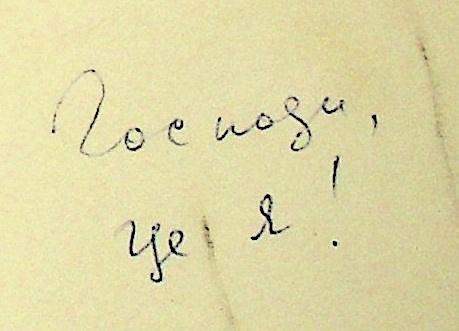 Господи,
це я!